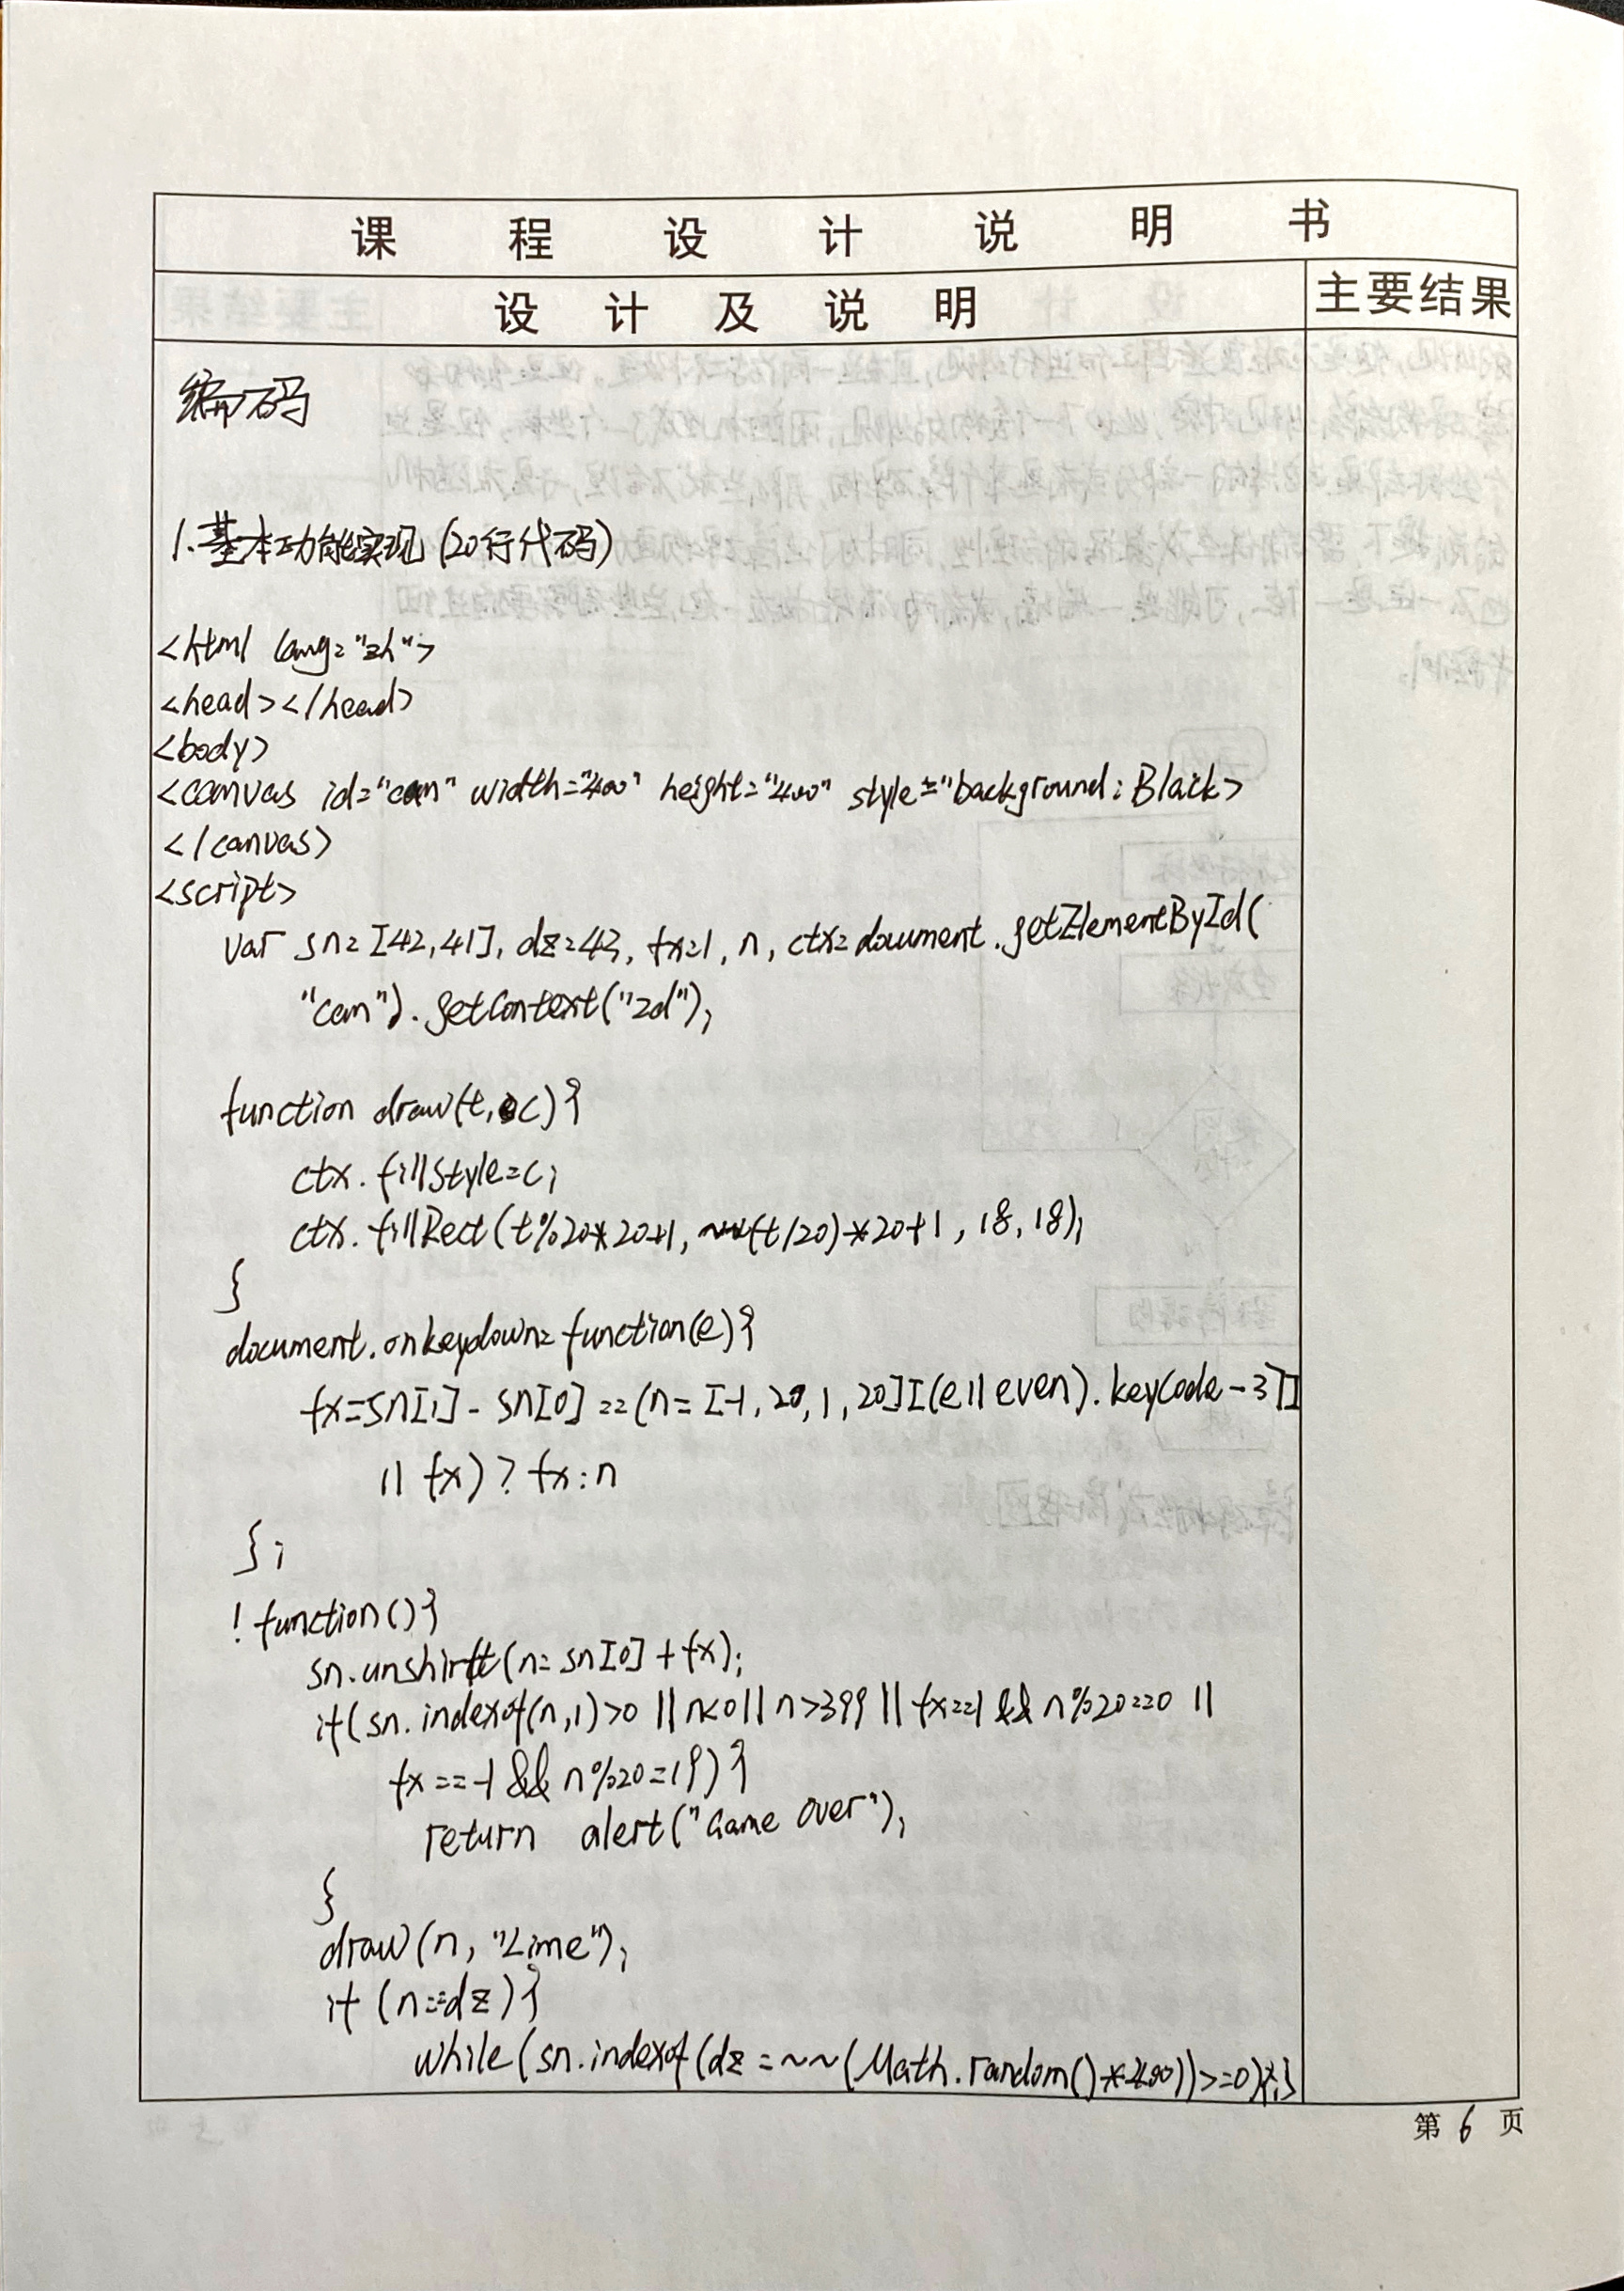 课程设计说明书
设计及说明
主要结果
编码
1.基本功能实现(20行代码)
<html lang="zh">
<head></head>
<body>
<canvas id="can" width="400" height="400" style="background:Black>
</canvas>
<script>
var sn=[42,41], dz=43, fx=1, n, ctx=document.getElementById(
"can").getContext("2d");
function draw(t,c){
ctx.fillStyle=c;
ctx.fillRect(t%20*20+1, ~~(t/20)*20+1, 18, 18);
}
document.onkeydown=function(e){
fx=sn[1]-sn[0]==(n=[-1,20,1,20][(e||even).keyCode-37]
|| fx)?fx:n
};
!function(){
sn.unshift(n=sn[0]+fx);
if(sn.indexof(n,1)>0||n<0||n>399||fx==1&&n%20==0||
fx==-1&&n%20=19){
return alert("Game Over");
}
draw(n,"Lime");
if(n==dz){
while(sn.indexof(dz=~~(Math.random()*400))>=0){;}
第6页